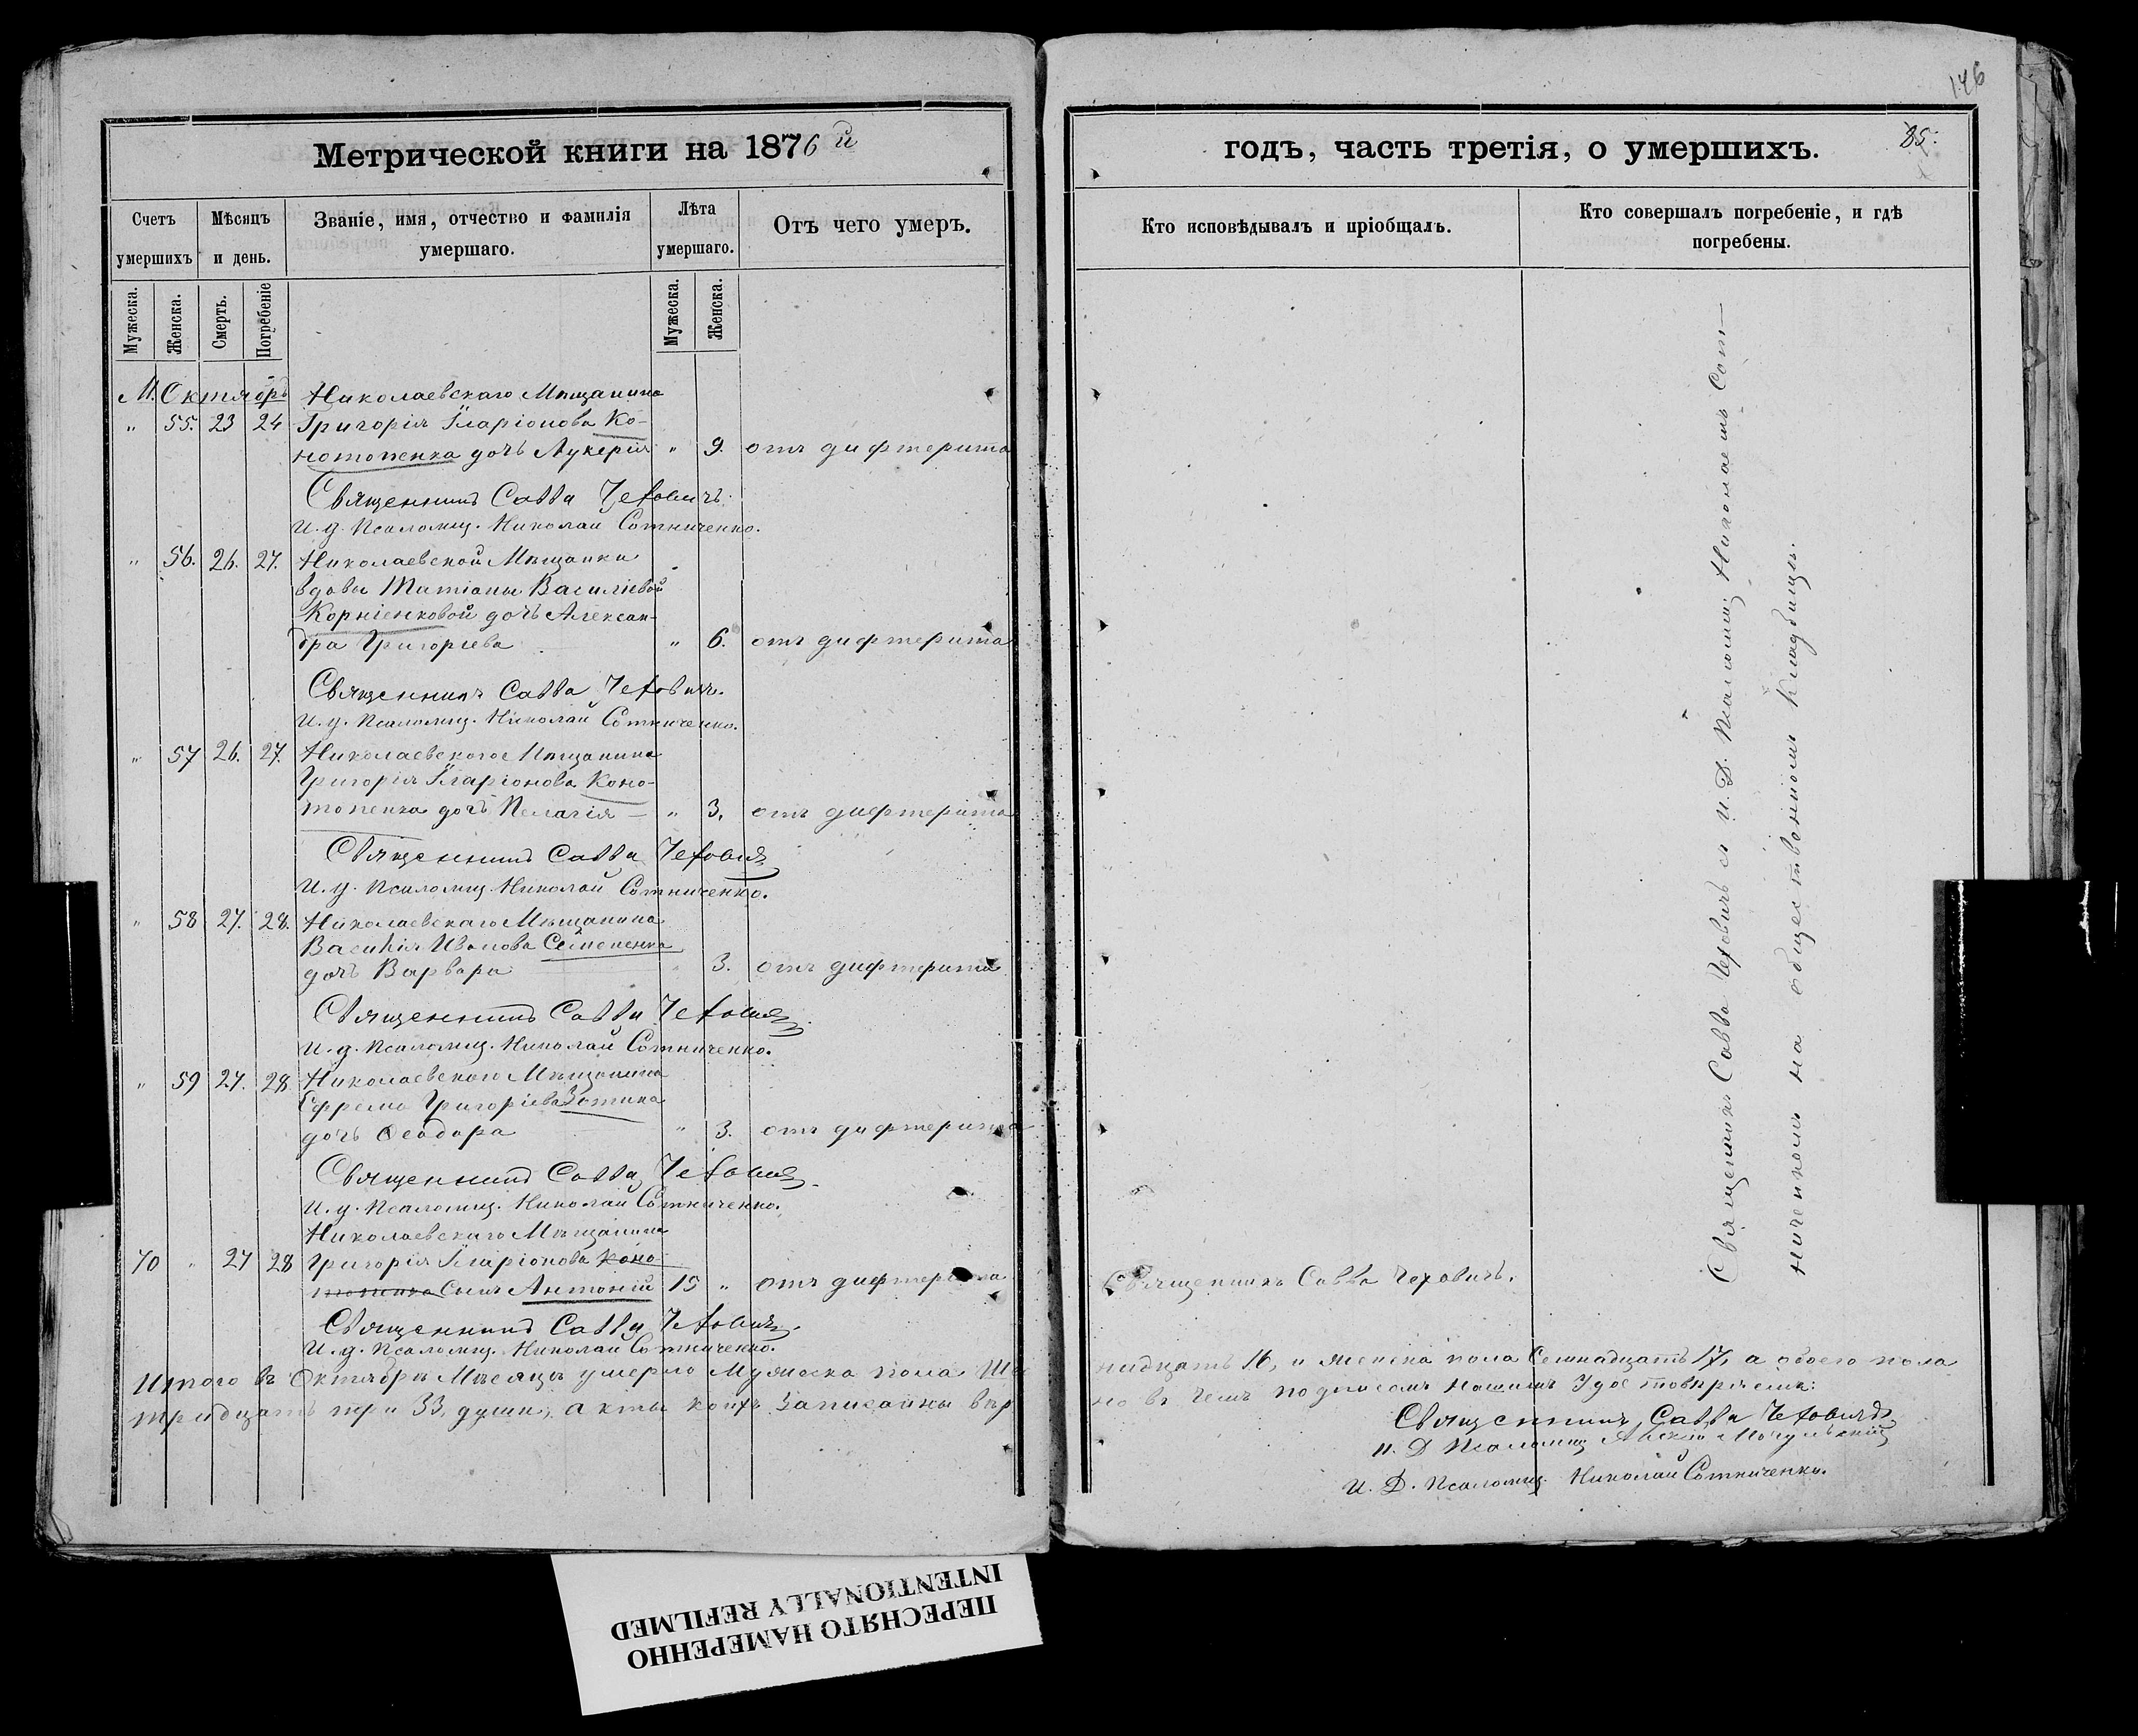 146
Метрической книги на 1876 й
годъ, часть третія, о умершихъ.
85.
Счетъ умершихъ
Мѣсяцъ и день.
Званіе, имя, отчество и фамилія умершаго.
Лѣта умершаго.
Отъ чего умеръ.
Кто исповѣдывалъ и пріобщалъ.
Кто совершалъ погребеніе, и гдѣ погребены.
Мужеска.
Женска.
Смерть.
Погребеніе
Мужеска.
Женска.
М. Октябрь Николаевскаго Мѣщанина
" 55. 23 24 Григорія Иларіонова Ко-
нотопенка дочь Лукерія " 9. отъ дифтерита
Священникъ Савва Чеховичъ.
И. д. Псаломщ. Николай Сотниченко.
" 56. 26. 27. Николаевской Мѣщанки
вдовы Татіаны Василіевой
Корніенковой дочь Алексан-
дра Григорьева " 6. отъ дифтерита
Священникъ Савва Чеховичъ.
И. д. Псаломщ. Николай Сотниченко.
" 57 26. 27. Николаевского Мѣщанина
Григорія Иларіонова Коно-
топенка дочь Пелагія — " 3. отъ дифтерита
Священникъ Савва Чеховичъ
И. д. Псаломщ. Николай Сотниченко.
" 58 27. 28. Николаевскаго Мѣщанина
Василія Иванова Семененка
дочь Варвара " 3. отъ дифтерита
Священникъ Савва Чеховичъ.
И. д. Псаломщ. Николай Сотниченко.
" 59 27. 28 Николаевского Мѣщанина
Ефрема Григоріева Зотика
дочь Ѳеодора " 3. отъ дифтерита
Священникъ Савва Чеховичъ.
И. д. Псаломщ. Николай Сотниченко.
Николаевскаго Мѣщанина
70 " 27 28 Григорія Иларіонова Коно-
топенка Сынъ Антоній 15 " отъ дифтерита
Священникъ Савва Чеховичъ.
И. д. Псаломщ. Николай Сотниченко.
Итого въ Октябрѣ Мѣсяцѣ умерло Мужеска пола Ше
тридцать три 33, души, акты коихъ записаны вѣр
Священникъ Савва Чеховичъ съ И. Д. Псаломщ. Николаемъ Сот—
ниченкомъ на общественномъ Кладбищѣ.
Священникъ Савва Чеховичъ.
надцать 16, и женска пола Семнадцать 17, а обоего пола
но въ чемъ подписомъ нашимъ Удостовѣряемъ:
Священникъ Савва Чеховичъ
И. Д Псаломщ Мочульскій
И. Д. Псаломщ. Николай Сотниченко.
ПЕРЕСНЯТО НАМЕРЕННО
INTENTIONALLY REFILMED